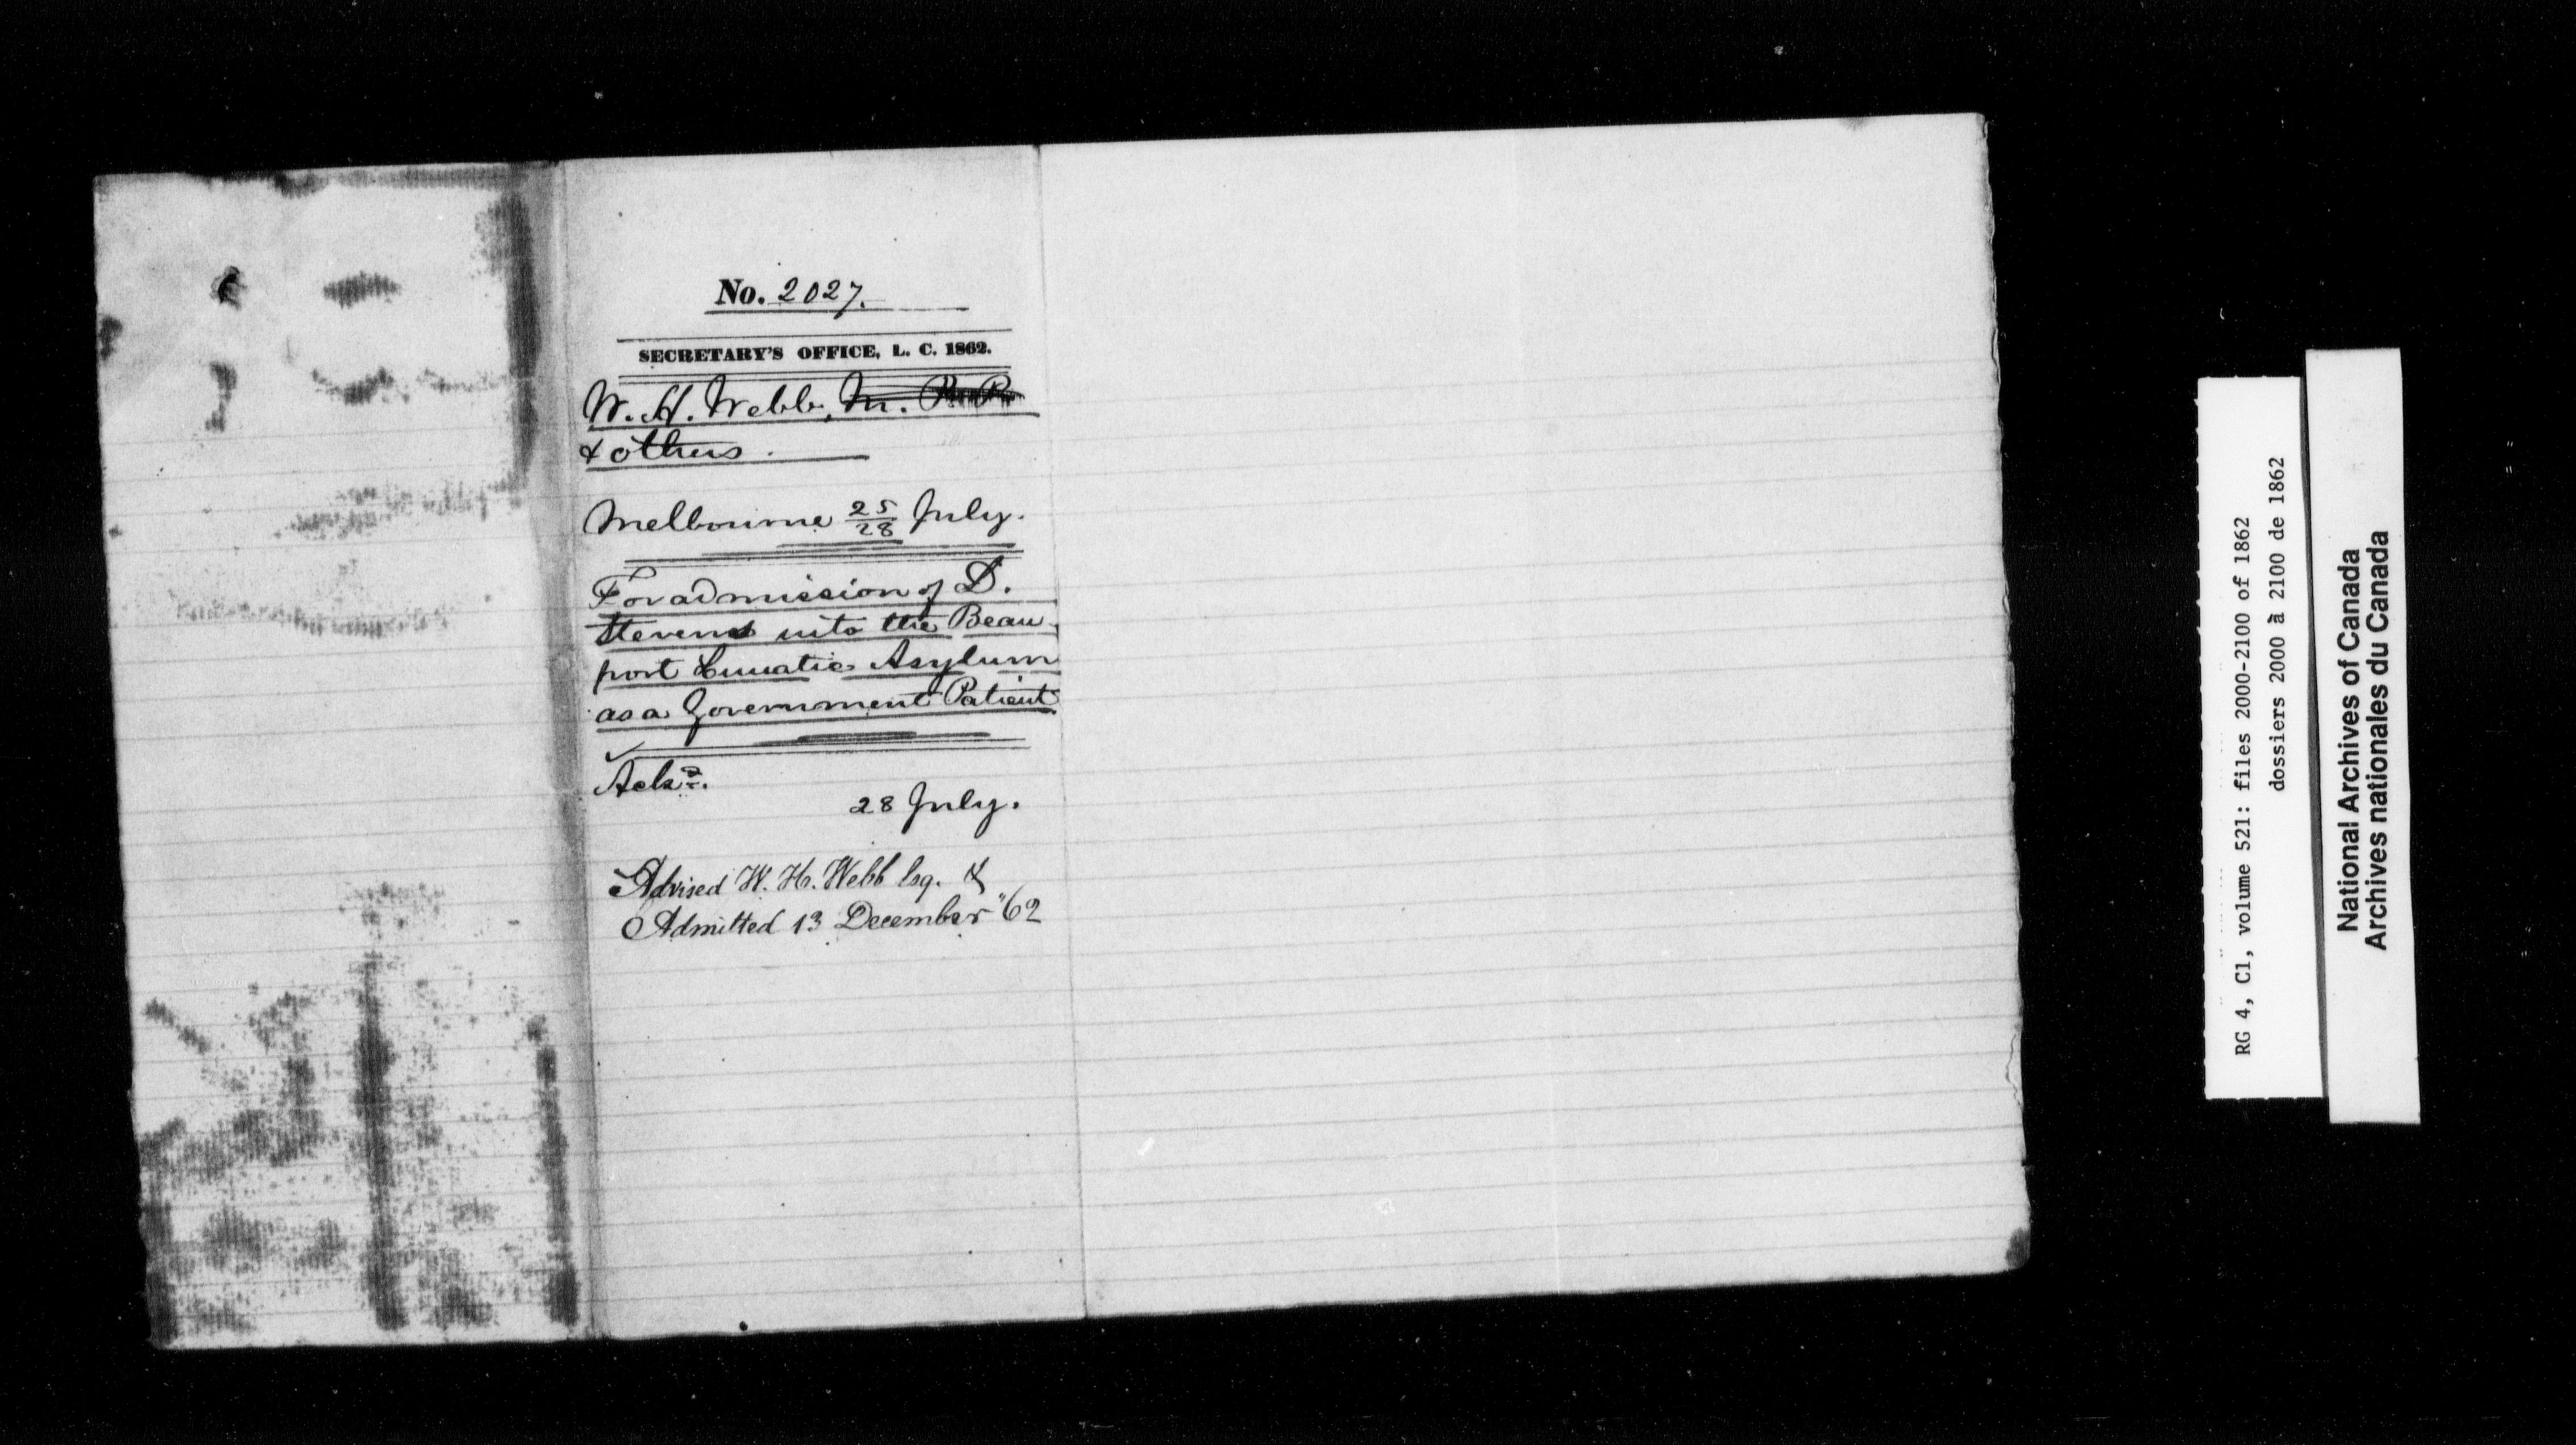 No. 2027.
SECRETARY'S OFFICE, L. C. 1862.
W. H. Webb, M. P. P.
& others.
Melbourne 25/28 July.
For admission of D.
Stevens into the Beau-
port Lunatic Asylum
as a Government Patient
Ackd.
28 July.
Advised W. H. Webb Esq. &
Admitted 13 December "62
RG 4, C1, volume 521: files 2000-2100 of 1862
dossiers 2000 à 2100 de 1862
National Archives of Canada
Archives nationales du Canada